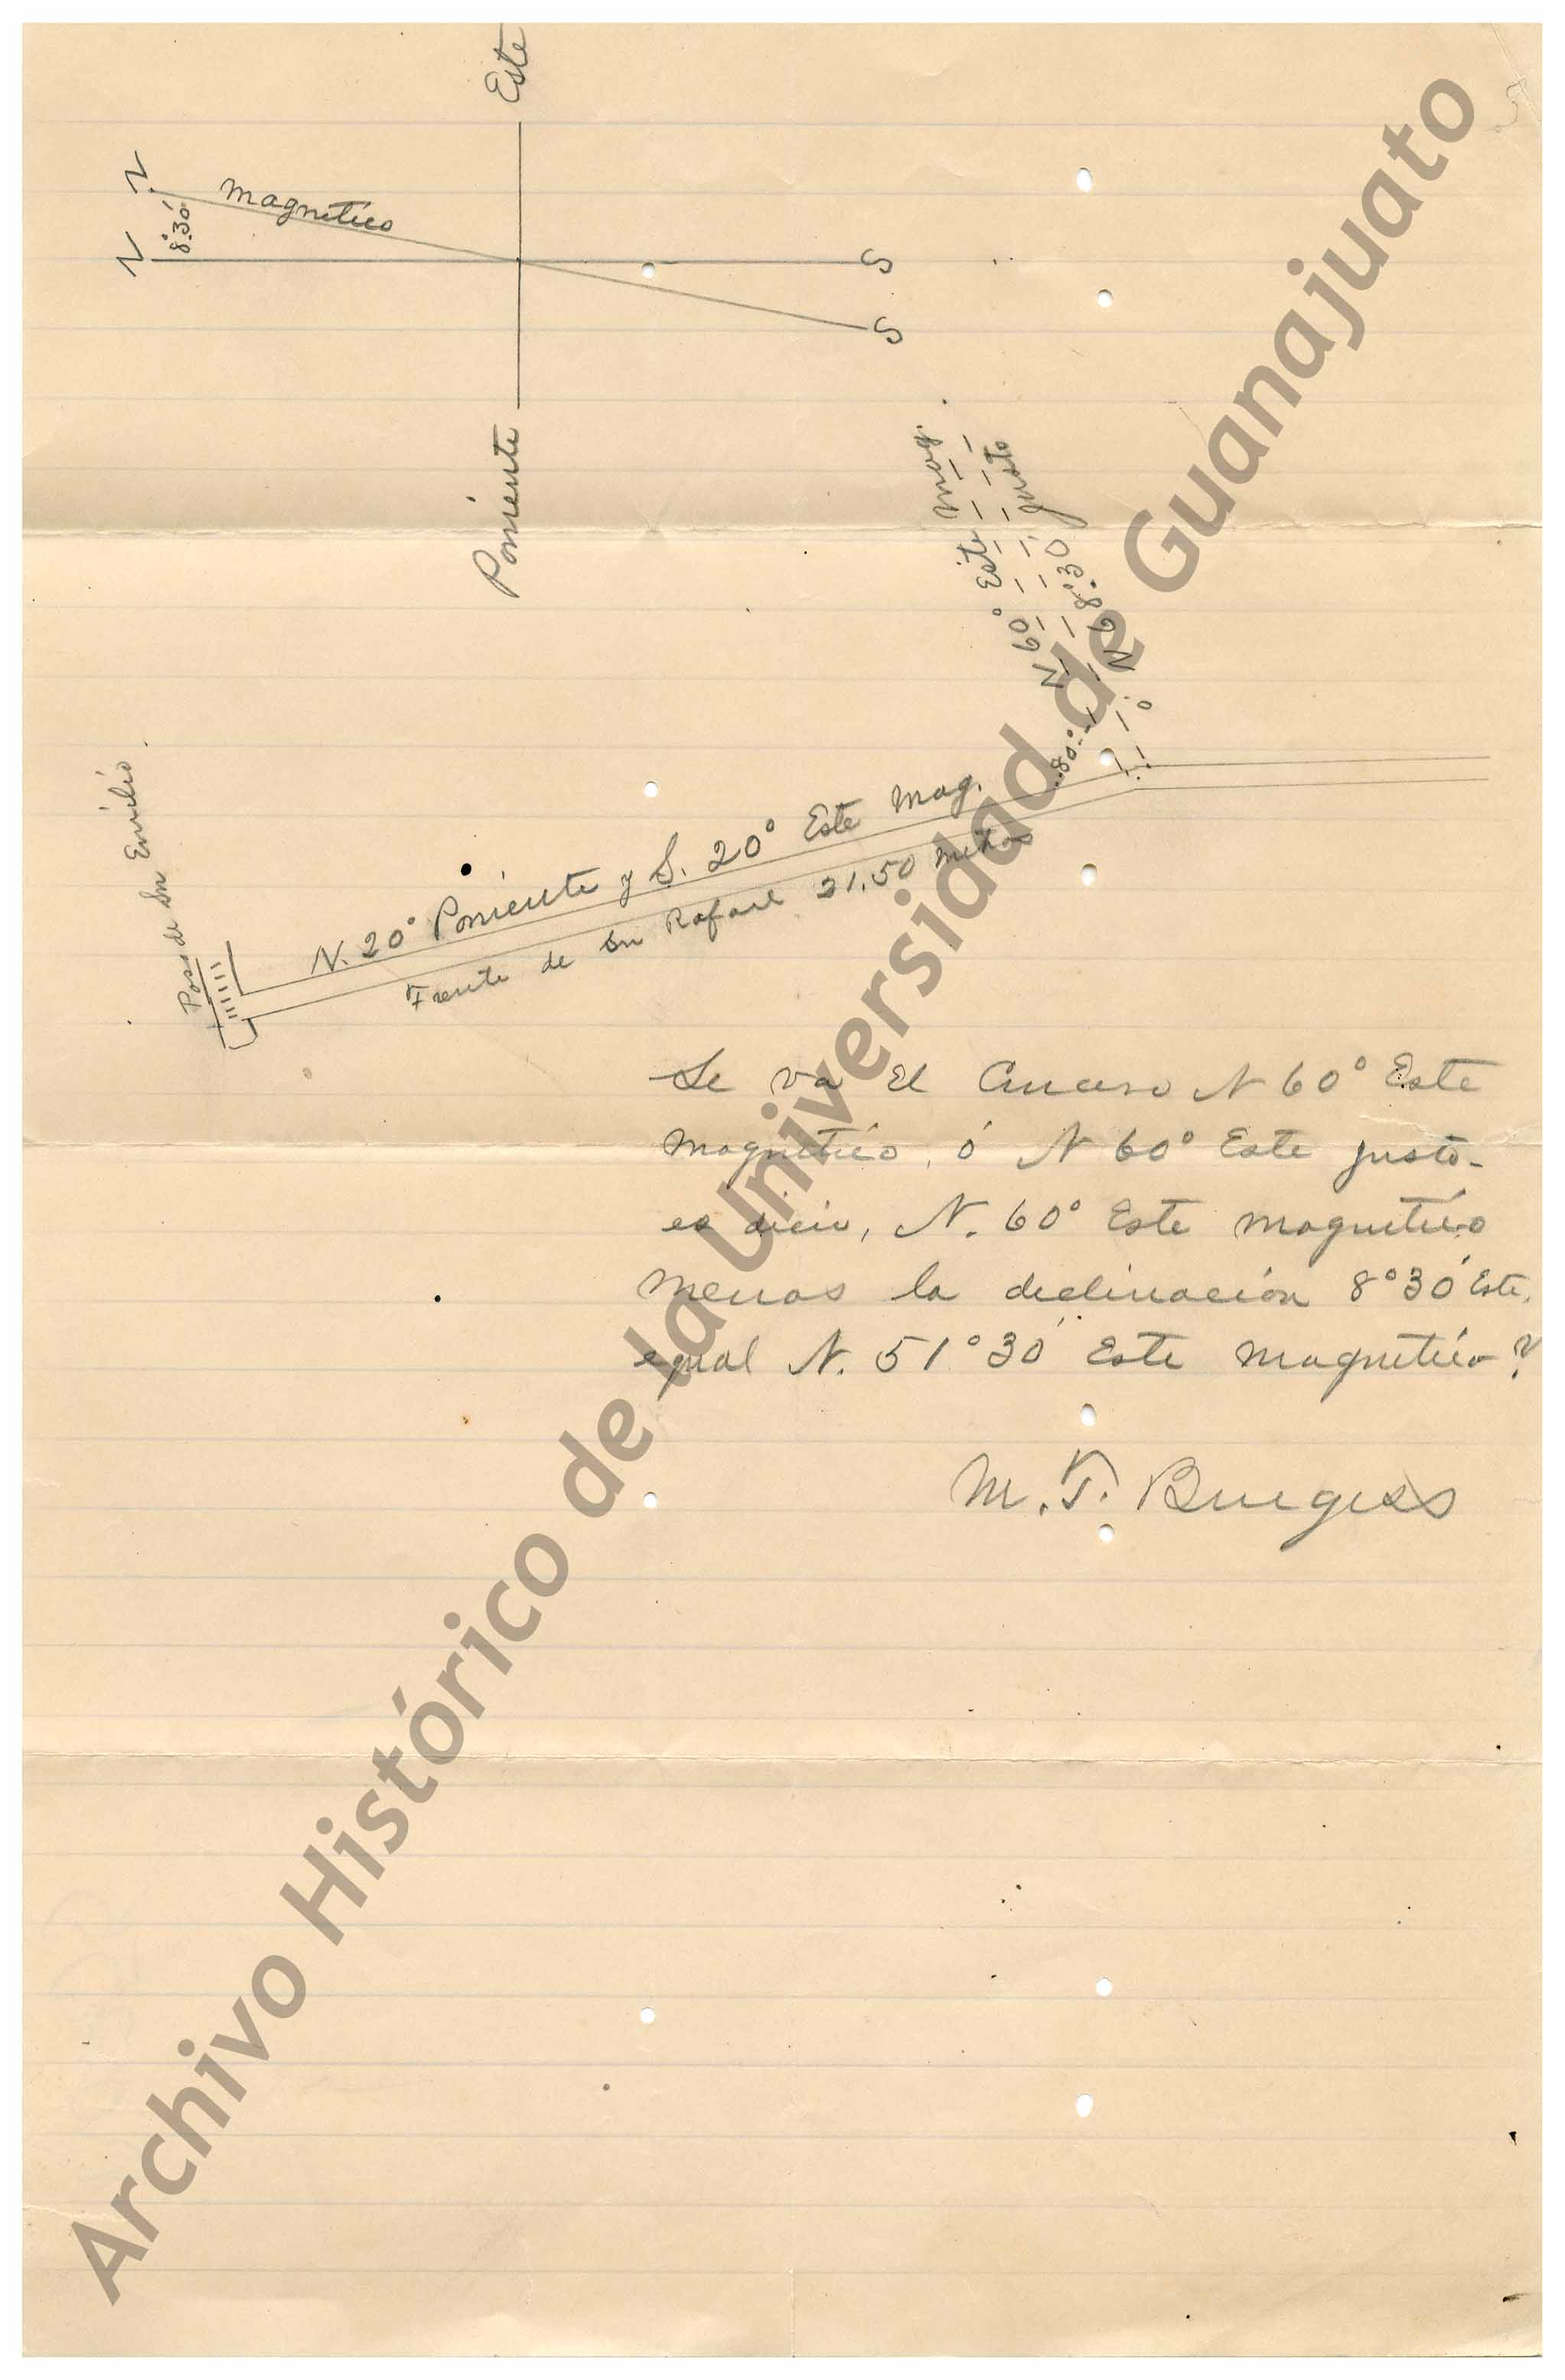 Este
N
N
8°30'
magnetico
S
S
Poniente
N 60° Este mag.
N 68°30' justo
80°
Poso de Sn Emilio.
N. 20° Poniente y S. 20° Este Mag.
Frente de Sn Rafael 21.50 metros
Se va el Crucero N 60° Este
magnetico, ó N 60° Este justo-
es dicir, N. 60° Este magnetico
menos la declinación 8°30' Este,
egual N. 51°30' Este magnetico?
M. T. Burgess
Archivo Histórico de la Universidad de Guanajuato